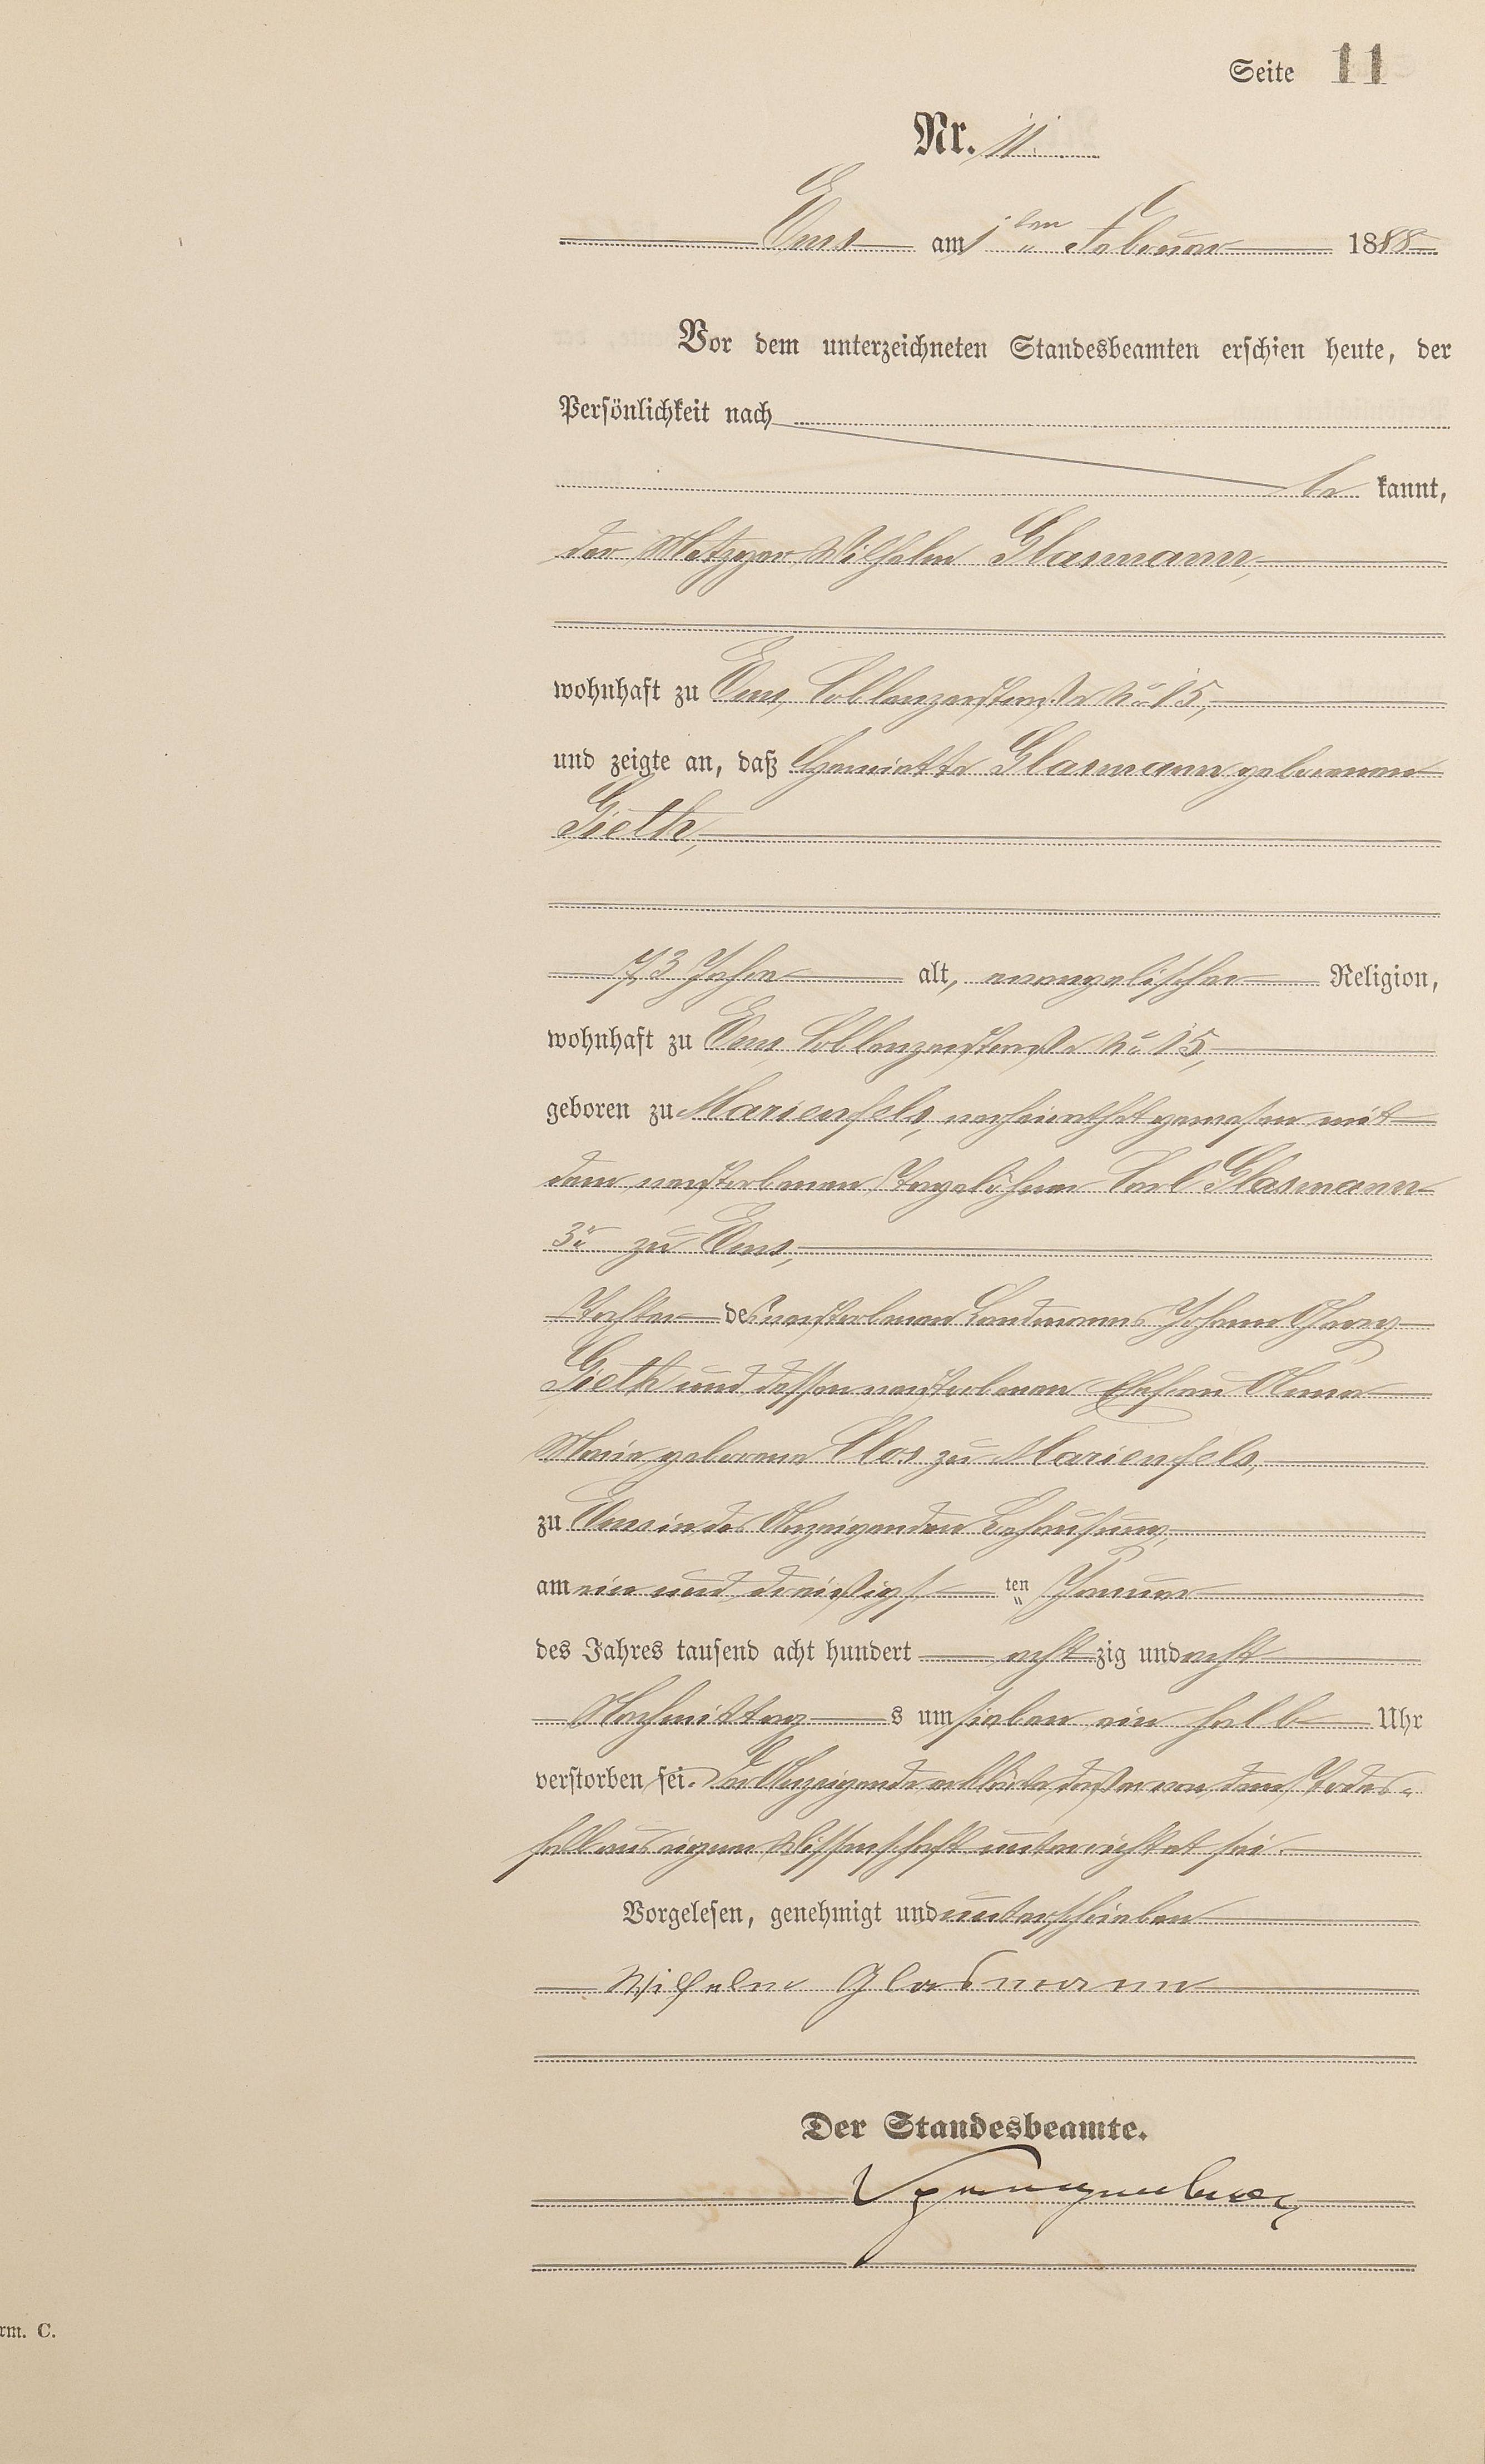 Seite 11
Nr. 11.
Ems am 1ten Februar 1888
Vor dem unterzeichneten Standesbeamten erschien heute, der
Persönlichkeit nach
be kannt,
der Metzger Wilhelm Glasmann,
wohnhaft zu Ems, Coblenzerstraße No 15,
und zeigte an, daß Henriette Glasmann geborenen
Gieth,
73 Jahre alt, evangelischer Religion,
wohnhaft zu Ems Coblenzerstraße No 15,
geboren zu Marienfels, verheirathet gewesen mit
dem verstorbenen Tagelöhner Carl Glasmann
3r zu Ems,
Tochter des verstorbenen Landmanns Johann Georg
Gieth und dessen verstorbenen Ehefrau Anna
Maria geborene Clos zu Marienfels,
zu Ems in des Anzeigenden Behausung,
am ein und dreißigsten Januar
des Jahres tausend acht hundert achtzig und acht
Nachmittags um sieben ein halb Uhr
verstorben sei. Der Anzeigende erklärte, daß er von dem Todes-
fall aus eigener Wissenschaft unterrichtet sei.
Vorgelesen, genehmigt und unterschrieben
Wilhelm Glasmann
Der Standesbeamte.
rm. C.